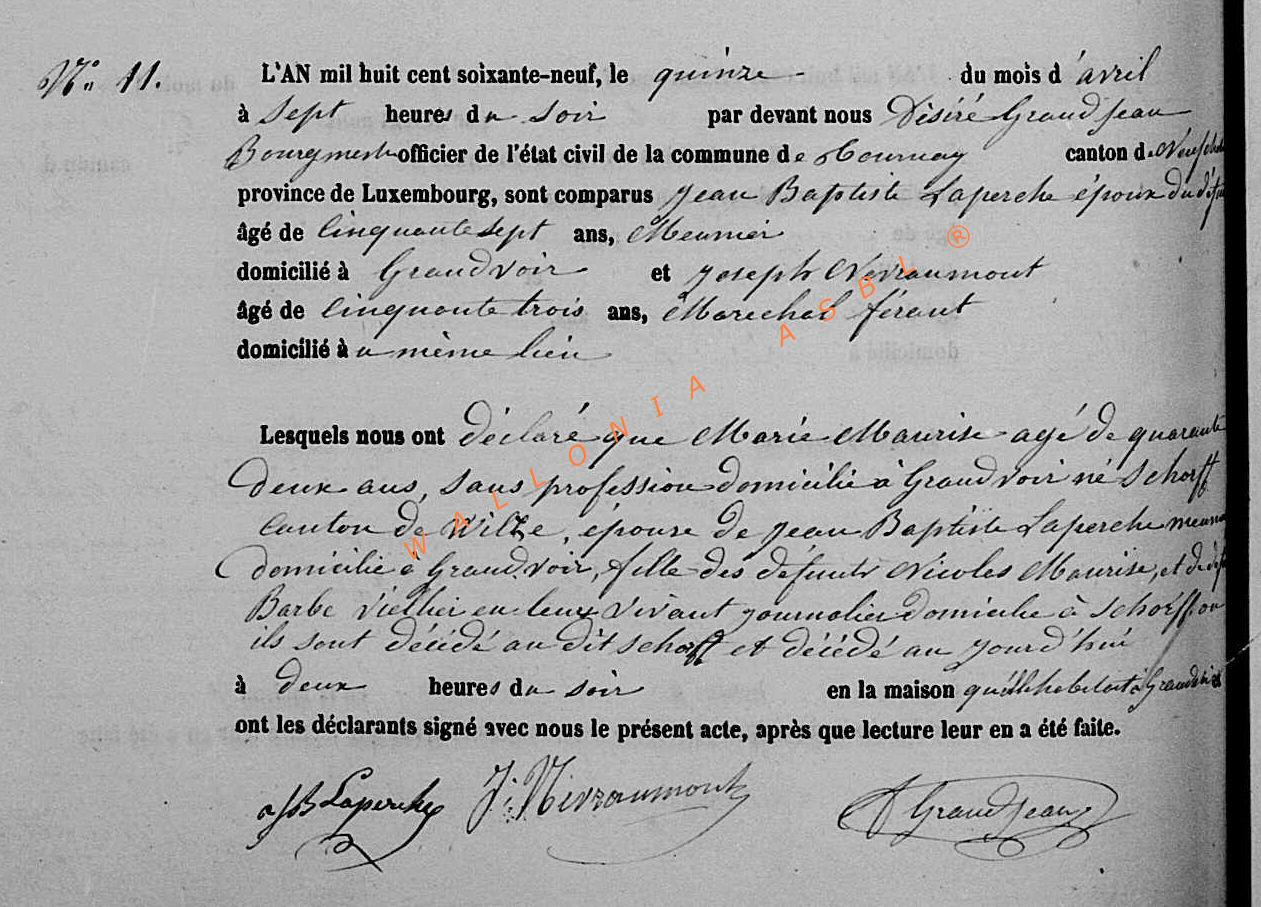 N° 11.
L'AN mil huit cent soixante-neuf, le quinze du mois d'avril
à sept heures du soir par devant nous Désiré Grandjean
Bourgmestre officier de l'état civil de la commune de Tournay canton de Neufch
province de Luxembourg, sont comparus Jean Baptiste Laperche époux du défun
âgé de cinquante sept ans, Meunier
domicilié à Grandvoir et Joseph Nevraumont
âgé de cinquante trois ans, Marechal férant
domicilié à u même lieu
Lesquels nous ont déclaré que Marie Maurise agé de quarante
deux ans, sans profession domicilié à Grandvoir né Schorff
Canton de Wiltze, épouse de Jean Baptiste Laperche meun
domicilié à Grandvoir, fille des défunts Nicolas Maurise, et de déf
Barbe en leur vivant journalier domicilié à Schorff ou
ils sont décédé au dit Schorff et décédé au jourd'hui
à deux heures du soir en la maison qu'il habitait à Grandvoir
ont les déclarants signé avec nous le présent acte, après que lecture leur en a été faite.
JB Laperche J: Nevraumont Grandjean
WALLONIA ASBL ®